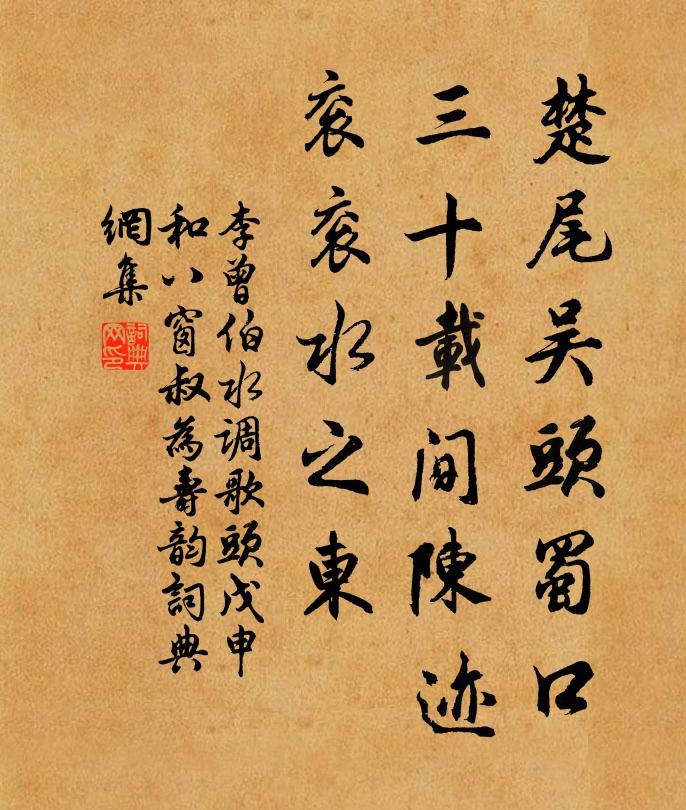 楚尾吴頭蜀口
三十載間陳迹
衮衮水之東
李曾伯水调歌頭戊申
和八窗叔為壽韵詞典
網集
詞典網印